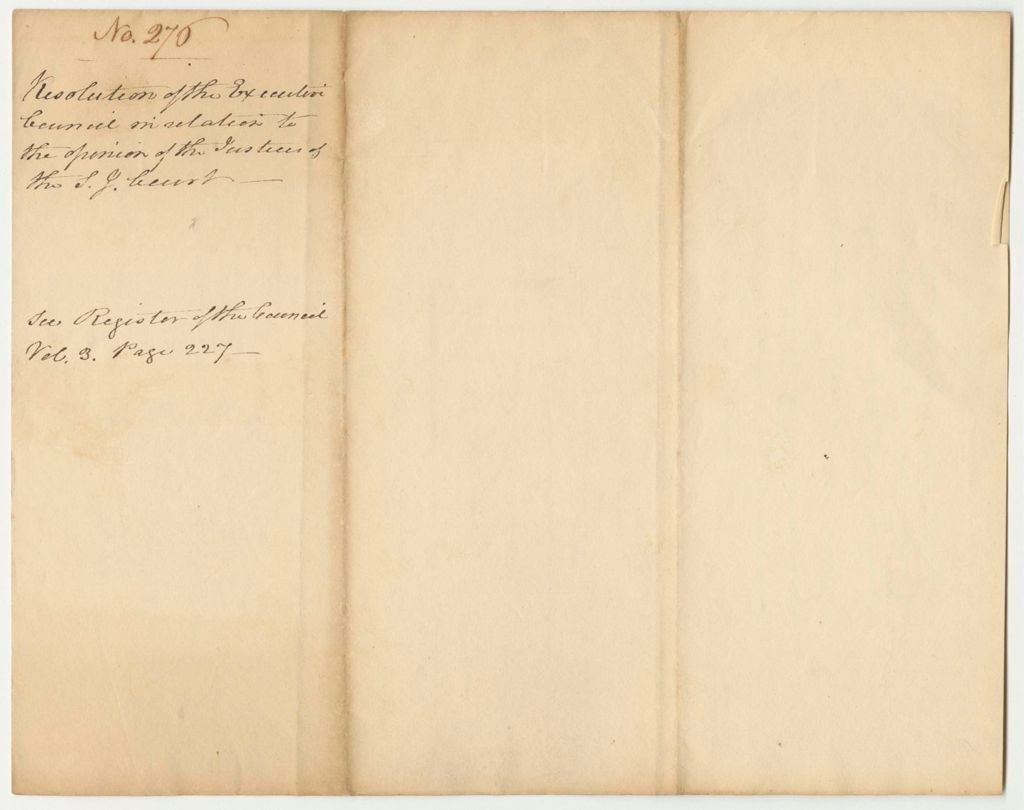 No. 276
Resolution of the Executive
Council in relation to
the opinion of the Justices of
the S. J. Court —
See Register of the Council
Vol. 3. Page 227 —